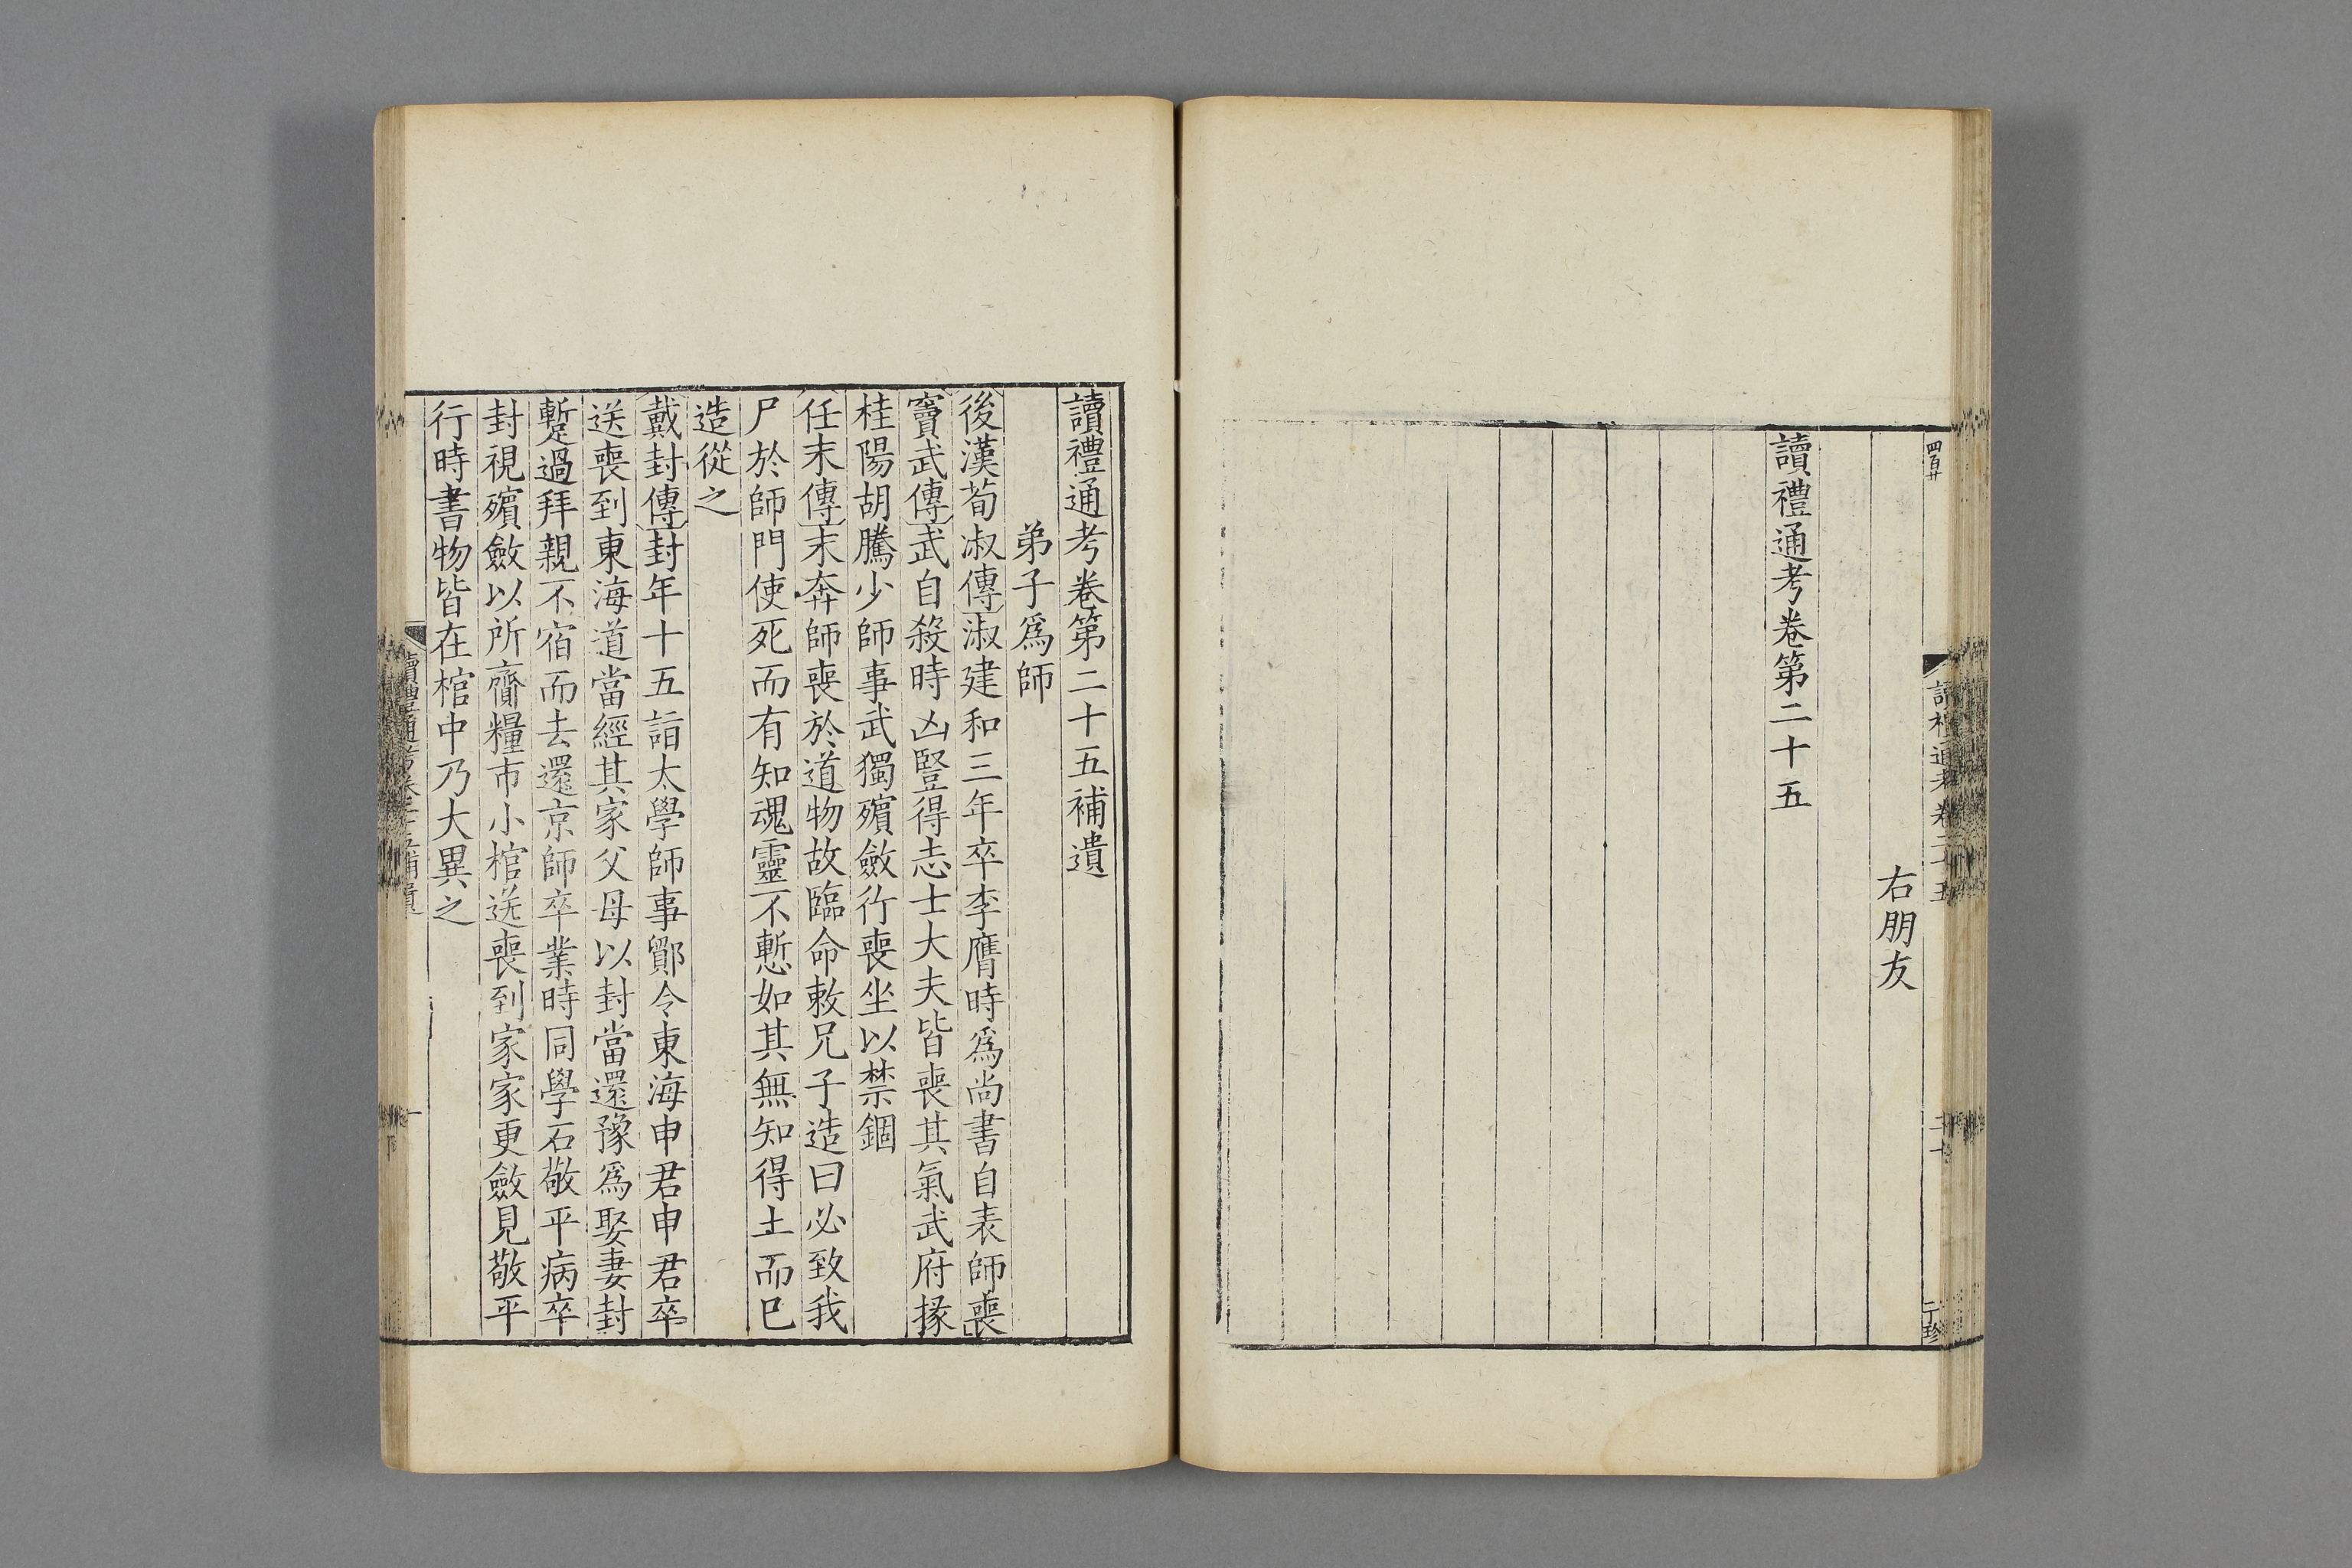 四百廿
右朋友
讀禮通考卷第二十五
讀禮通考卷第二十五補遺
弟子爲師
後漢荀淑傳淑建和三年卒李膺時爲尚書自表師喪
竇武傳武自殺時凶豎得志士大夫皆喪其氣武府掾
桂陽胡騰少師事武獨殯斂行喪坐以禁錮
任末傳末奔師喪於道物故臨命敕兄子造曰必致我
尸於師門使死而有知魂靈不慙如其無知得土而已
造從之
戴封傳封年十五詣太學師事鄮令東海申君申君卒
送喪到東海道當經其家父母以封當還豫爲娶妻封
蹔過拜親不宿而去還京師卒業時同學石敬平病卒
封視殯斂以所齎糧市小棺送喪到家家更斂見敬平
行時書物皆在棺中乃大異之